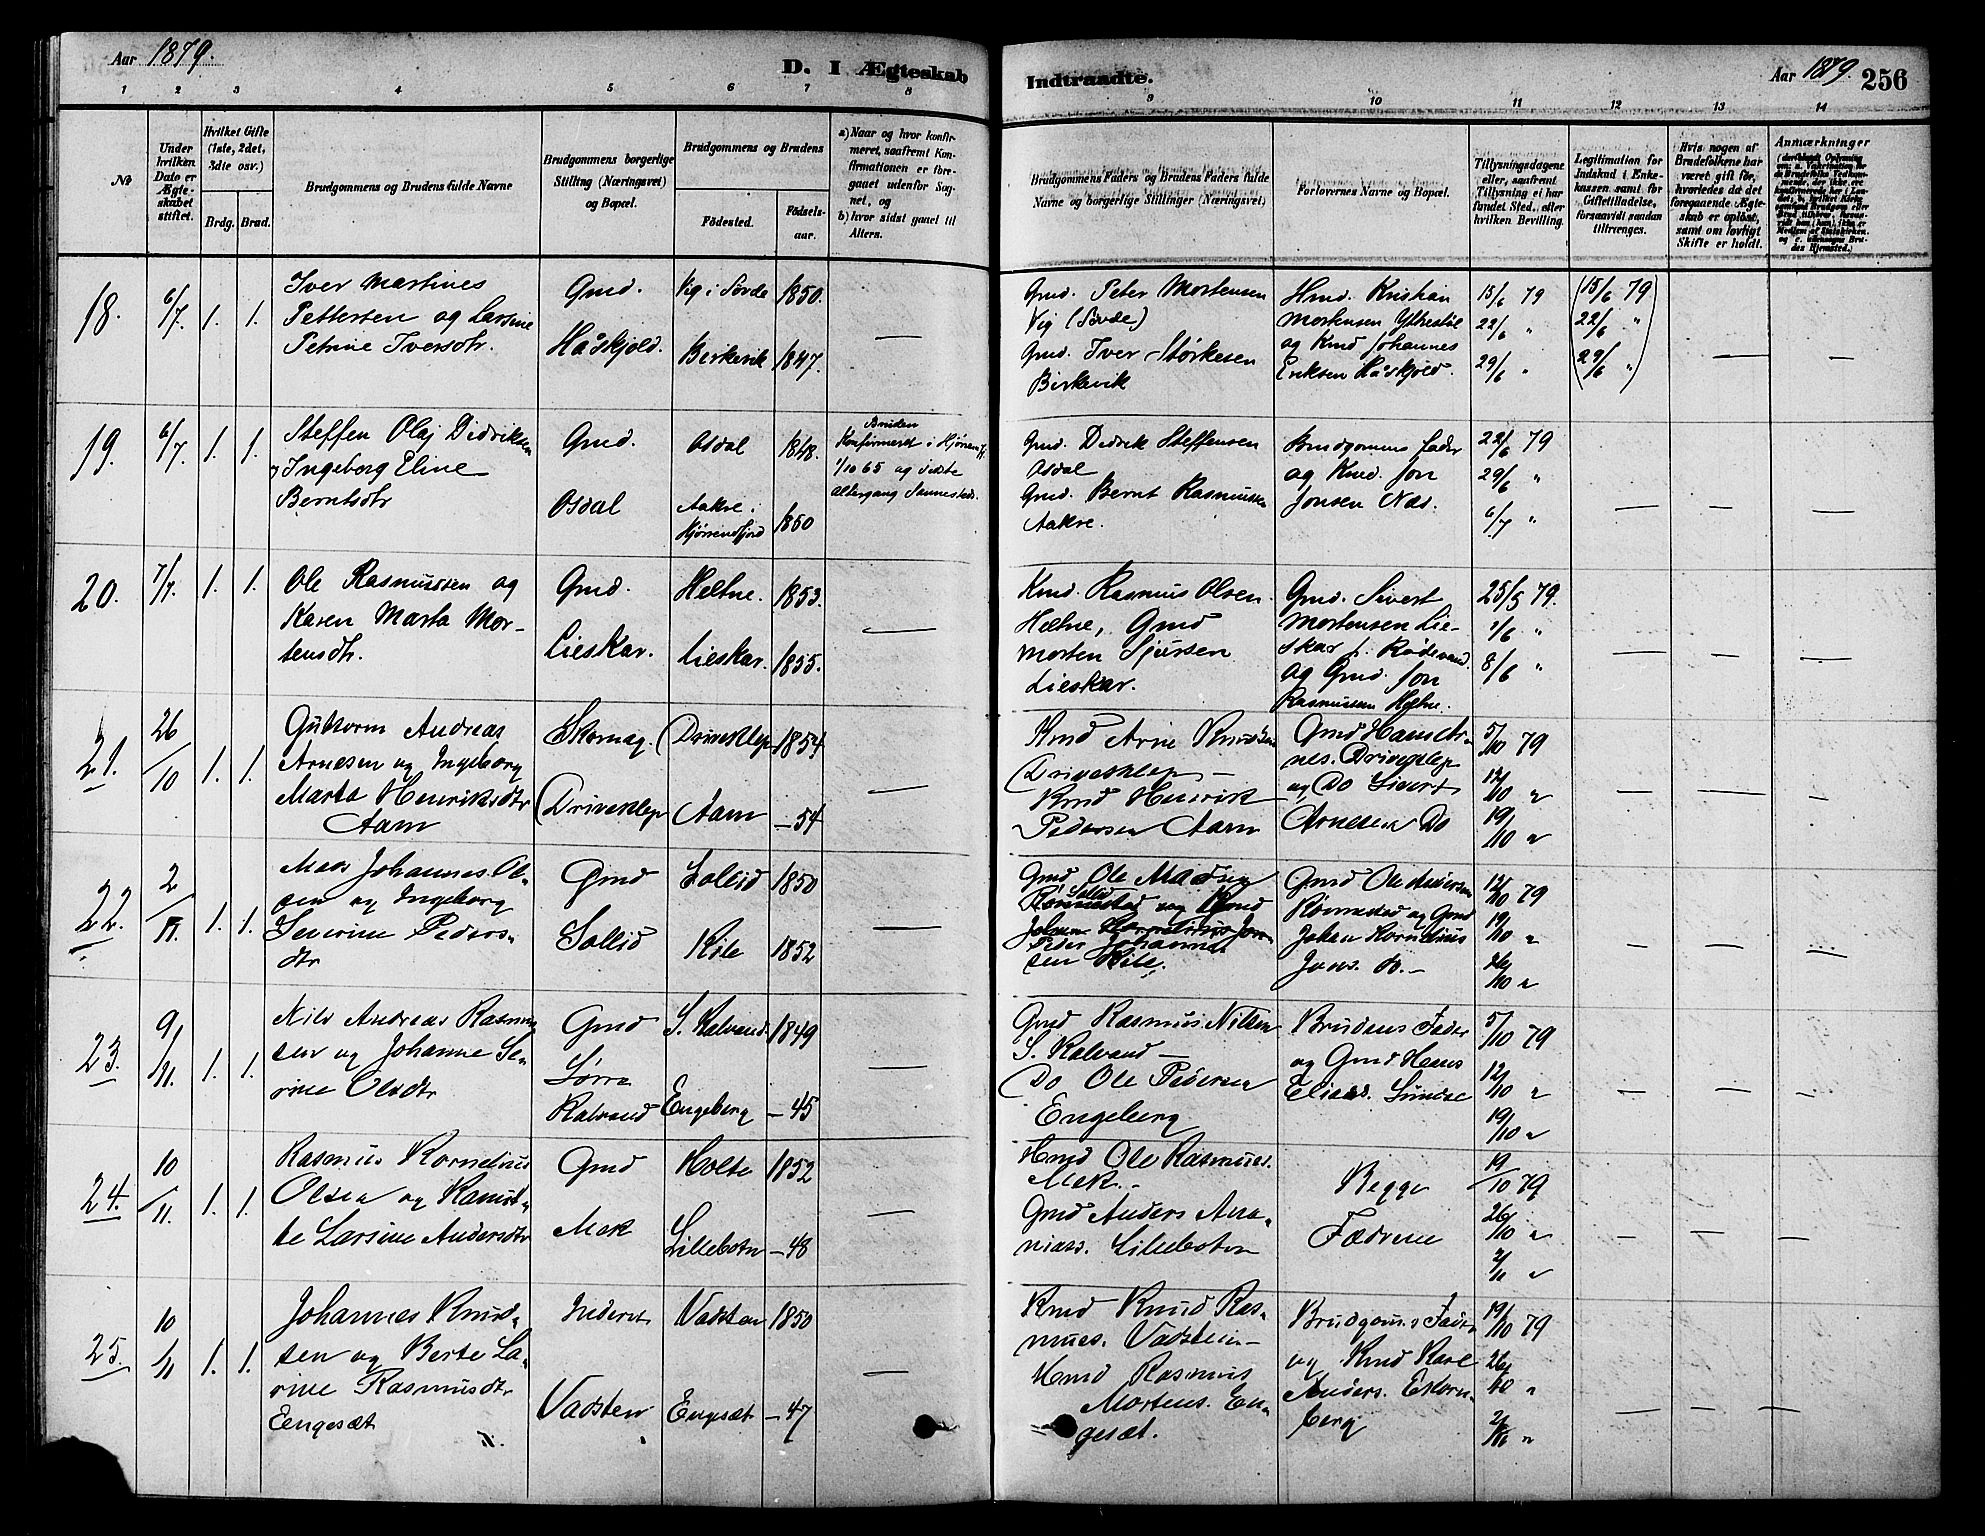 Aar 1879.
D. I Ægteskab
Indtraadte.
Aar 1879.
256
1 2 3 4 5 6 7 8
9 10 11 12 13 14
No
Under hvilken Dato er Ægteskabet stiftet.
Hvilket Gifte (1ste, 2det, 3die osv.)
Brdg. Brud.
Brudgommens og Brudens fulde Navne
Brudgommens borgerlige Stilling (Næringsvei) og Bopæl.
Brudgommens og Brudens
Fødested. Fødselsaar.
a) Naar og hvor konfirmeret, saafremt Konfirmationen er foregaaet udenfor Sognet, og
b) hvor sidst gaaet til Alters.
Brudgommens Faders og Brudens Faders fulde Navne og borgerlige Stillinger (Næringsvei)
Forlovernes Navne og Bopæl.
Tillysningsdagene eller, saafremt Tillysning ei har fundet Sted, efter hvilken Bevilling.
Legitimation for Indskud i Enkekassen samt for Giftetilladelse, forsaavidt saadan tiltrænges.
Hvis nogen af Brudefolkene har været gift før, hvorledes da det foregaaende Ægteskab er opløst, samt om lovligt Skifte er holdt.
Anmærkninger
18. 6/7 1. 1.
Iver Martines
Pettersen og Larsine
Petrine Iversdtr.
Gmd.
Håskjold.
Vig i Sövde 1850.
Birkevik 1847.
—
Gmd. Peter Mortensen
Vig (Sövde)
Gmd. Iver Störkesen
Birkevik
Hmd. Kristian
Mortensen Yttrestöl
og Kmd Johannes
Eriksen Håskjold.
15/6 79
22/6 "
29/6 "
(15/6 79)
22/6 "
29/6 "
— —
19. 6/7 1. 1.
Steffen Olaj Didriksen
og Ingeborg Eline
Berntsdtr
Gmd.
Osdal
Osdal 1848.
Aakre i
Hjörrendfjord 1850
Bruden
Konfirmeret i Hjörrendfj.
1/10 65 og sidste
altergang sammesteds.
Gmd. Didrik Steffensen
Osdal
Gmd. Bernt Rasmussen
Aakre.
Brudgomens fader
og Kmd. Jon
Jonsen Næs.
22/6 79
29/6 "
6/7 "
— — —
20. 7/7. 1. 1.
Ole Rasmussen og
Karen Marta Mor-
tensdtr.
Gmd.
Lieskar.
Heltne. 1853.
Lieskar. 1855.
—
Kmd. Rasmus Olsen
Heltne, Gmd
Morten Sjursen
Lieskar.
Gmd. Sivert
Mortensen Lie-
skar f. Rödevand
og Gmd. Jon
Rasmussen Heltne.
25/5 79.
1/6 "
8/6 "
— — —
21. 26/10 1. 1.
Guttorm Andreas
Arnesen og Ingeborg
Marta Henriksdtr
Aam
Skomag.
Driveklep
Driveklep 1854
Aam — 54
—
Kmd Arne Knudsen
Driveklep —
Kmd Henrik
Pedersen Aam
Gmd Hans Ar-
nes. Driveklep
og Do Sivert
Arnesen Do
5/10 79
12/10 "
19/10 "
— — —
22. 2/11. 1. 1.
Mads Johannes Ol-
sen og Ingeborg
Severine Peders-
dtr
Gmd
Sollid
Sollid 1850
Kile 1852
—
Gmd Ole Madsen
Sollid
Rönnestad og Kmd
Johan Kornelius Jon-
Peder Johanne-
sen Kile.
Gmd Ole Andersen
Rönnestad og Gmd
Johan Kornelius
Jons. do. —
12/10 79
19/10 "
26/10 "
— — —
23. 9/11. 1. 1.
Nils Andreas Rasmus-
sen og Johanne Se-
rine Olsdtr
Gmd
Sörre
Kalvand
S. Kalvand. 1849
Engeberg — 45
—
Gmd Rasmus Nilsen
S. Kalvand —
Do Ole Pedersen
Engeberg
Brudens Fader
og Gmd Hans
Elias. Sundal
5/10 79
12/10 "
19/10 "
— — —
24. 10/11. 1. 1.
Rasmus Kornelius
Olsen og Kanut-
te Larsine Andersdtr
Gmd
Mek
Holte 1852
Lillebotn — 48
—
Hmd Ole Rasmus.
Mek. —
Gmd Anders Ana-
nias. Lillebotn
Begge
Fædrene
19/10 79
26/10 "
2/11 "
— — —
25. 10/11 1. 1.
Johannes Knud-
sen og Berte La-
rine Rasmusdtr
Eengesæt
Inderst
Vadsten
Vadsten 1850
Engesæt — 47
—
Kmd Knud Ras-
mus. Vadstein —
Hmd Rasmus
Mortens. En-
gesæt.
Brudgoms Fader
og Kmd Karl
Anders. Eskorn-
berg
19/10 79
26/10 "
2/11 "
— — —